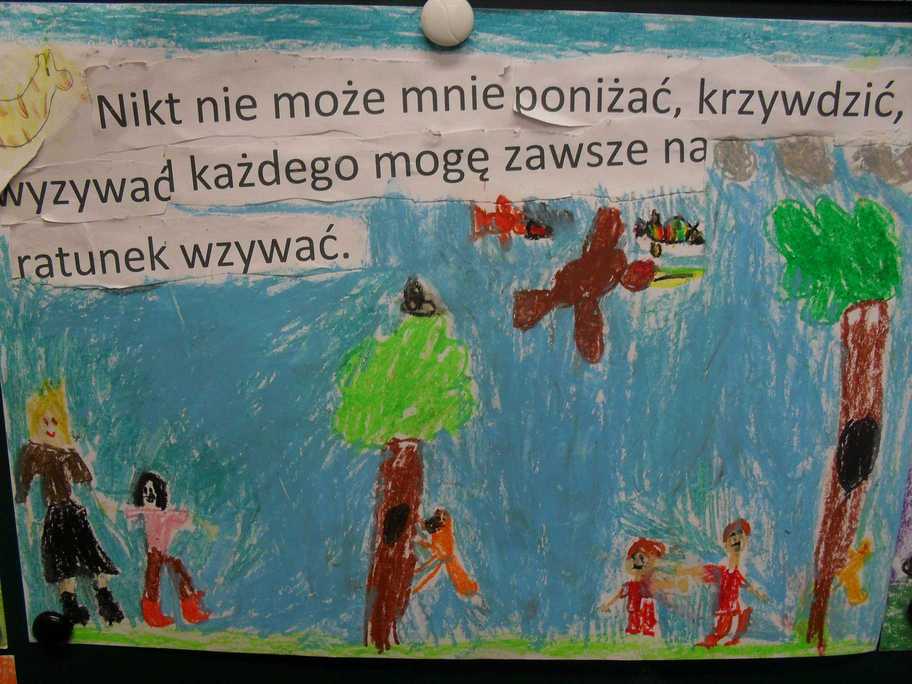 Nikt nie może mnie poniżać, krzywdzić,
wyzywać każdego mogę zawsze na
ratunek wzywać.